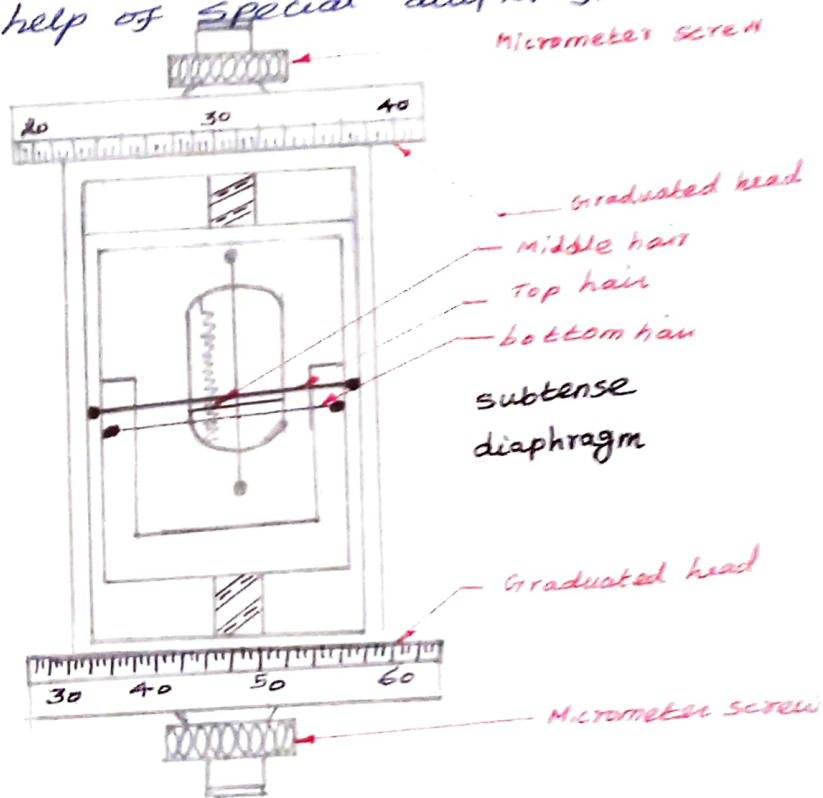 help of special
Micrometer screw
20 30 40
Graduated head
Middle hair
Top hair
bottom hair
subtense
diaphragm
Graduated head
30 40 50 60
Micrometer screw